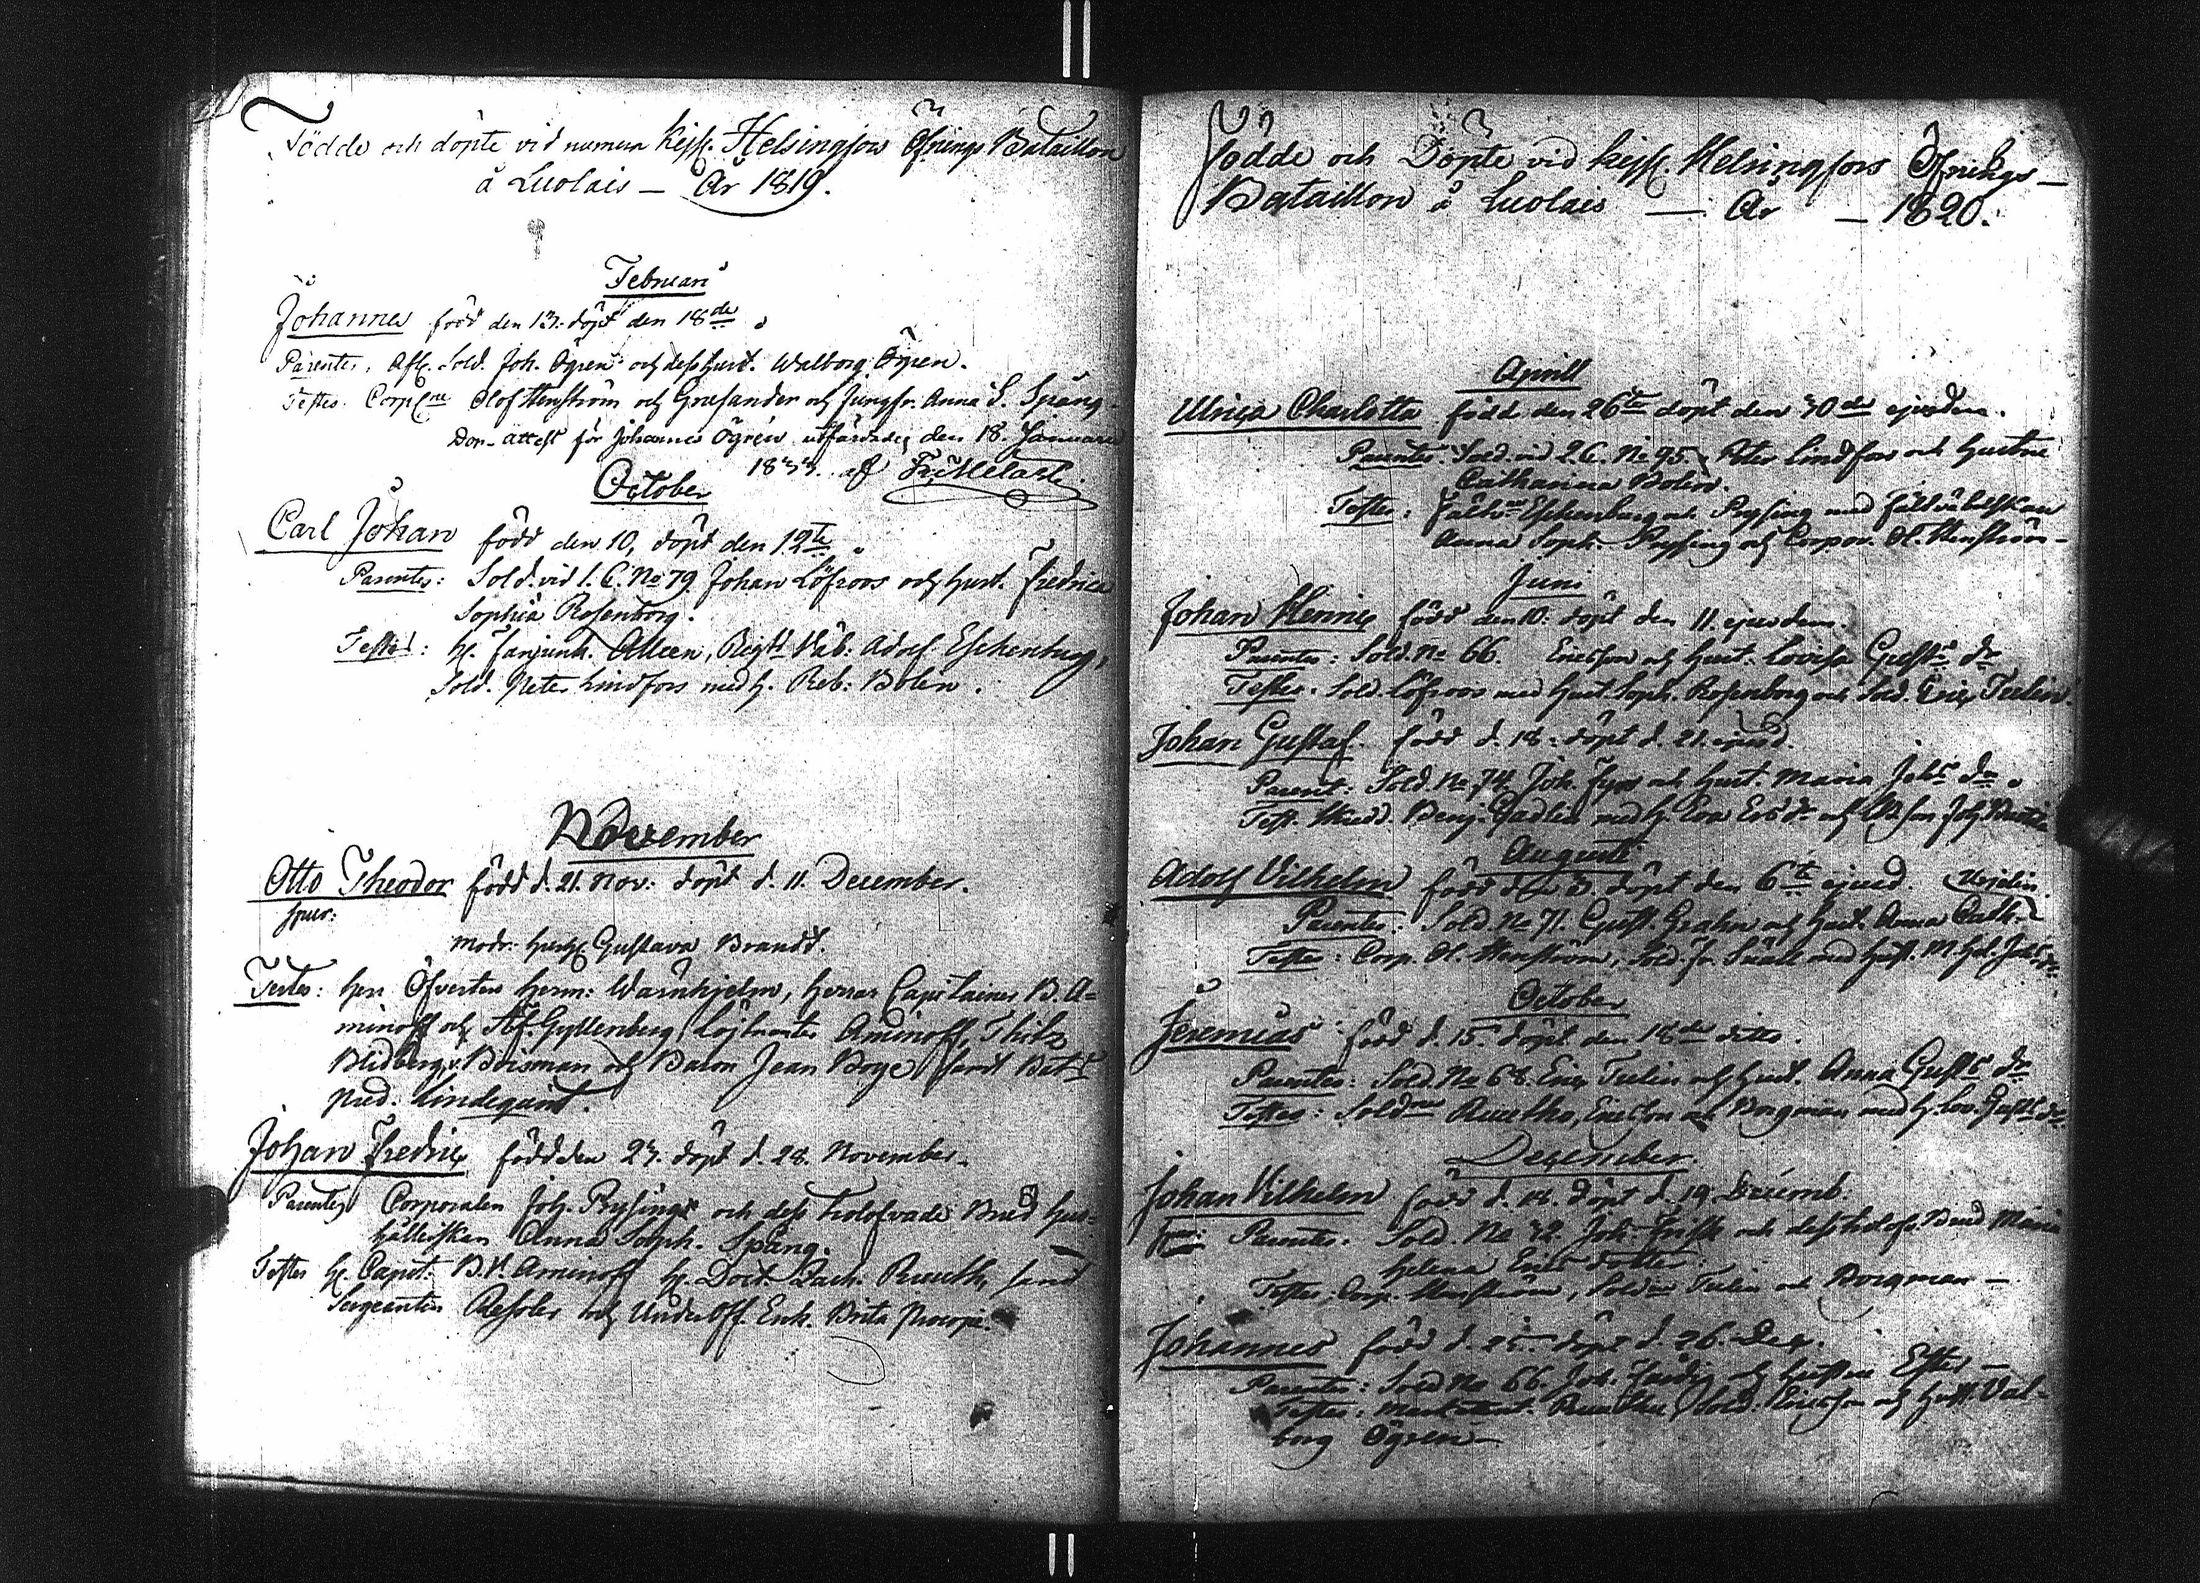 Födde och döpte vid numera Kejs. Helsingfors Öfnings Bataillon
à Lucolais — År 1819.
Februari
Johannes född den 13. döpt den 18de
Parentes, Afsk. Sold. Joh. Ögren och dess Hust. Walborg Ögren.
Testes. Corplne Olof Stenström och Gräsander och Jungfr. Anna S. Spång
Dop-attest för Johannes Ögrén utfärdades den 18. Januarii
1833. af
October
Carl Johan född den 10, döpt den 12te
Parentes: Sold. vid 1. C. No 79 Johan Löfroos och hust. Fredrica
Sophia Rosenborg.
Testes: H. Fanjunk. Alleen, Regts Väb: Adolf Eschenburg,
Sold. Peter Lindfors med h. Reb: Bolen.
November
Otto Theodor född d. 21. Nov: döpt d. 11. December.
spur:
Modr: Gustava Brandt.
Testes: Herr Öfversten Herm: Wärnhjelm, Herrar Capitainer B. A=
minoff och Af. Gyllenberg, Löjtnanter Aminoff, Thitz
Blidberg, Boisman och Baron Jean Boge samt Batts
Pred. Lindequist.
Johan Fredric född den 23. döpt d. 28. November.
Parentes Corporalen Joh. Prysing och dess trolofvade Brud Hus=
hållerskan Anna Soph. Spång.
Testes H. Capit: B. Aminoff H. Doct. Zach. Ruuth, samt
Sergeanten Ressler och Underoff. Enk. Brita Procopé.
Födde och Döpte vid Kejs. Helsingfors Öfnings—
Bataillon à Lucolais — År — 1820.
Aprill
Ulrica Charlotta född den 26te döpt den 30de ejusdem.
Parentes: Sold. vid 2. C. No 95 Peter Lindfors och hustru
Catharina Bolin.
Testes: Eschenburg och Prysing med Fältväbelskan
Anna Soph. Prysing och Corpor. Ol. Stenström—
Juni
Johan Henric född den 10. döpt den 11. ejusdem.
Parentes: Sold. No 66. Ericsson och hust. Lovisa Gustsdr
Testes. Sold. Löfroos med hust. Soph. Rosenborg och Sold. Eric Teelin.
Johan Gustaf. född d. 18. döpt d. 21. ejusd.
Parent: Sold. No 74. Joh. Fyrr och hust. Maria Johsdr
Test. Benj. Gadlin med h. Eva Ersdr och Joh.
Augusti
Adolf Vilhelm född den 3. döpt den 6te ejusd.
Parentes: Sold. No 71. Gust. Grahn och hust. Anna Cath.
Testes: Corp. Ol. Stenström, Sold. Fr. Snäll med hust. M. Hel. Johsdr
October
Jeremias född d. 15. döpt den 18de ditto.
Parentes: Sold. No 68. Eric Teelin och hust. Anna Gustsdr
Testes: Soldrne Ruutho, Ericsson och Borgman med h. Lov. Gustsdr
December.
Johan Vilhelm född d. 14. döpt d. 19. Decemb.
Parentes. Sold. No 32. Joh. Frisk och dess trolofv. Brud Maria
Helena Ericsdotter.
Testes: Corp. Stenström, Soldne Teelin och Borgman—
Johannes född d. 25. döpt d. 26. Dec.
Parentes: Sold No 66. Joh. och hustru Ester
Testes: Ruuthu, Sold. Ericsson och hust. Val=
borg Ögren—